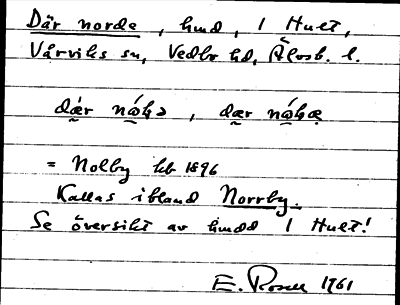 Där norde, hmd, 1 Hult,
Vårviks sn, Vedbo hd, Älvsb. l.
= Nolby kb 1896
Kallas ibland Norrby.
Se översikt av hmdd 1 Hult!
E. Rosell 1961